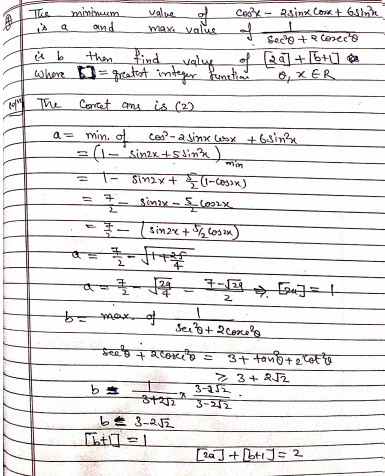 Q The minimum value of cos²x - 2sinx cosx + 6sin²x
is a and max. value of 1/(sec²θ + 2cosec²θ)
is b then find value of [2a] + [b+1]
where [.] = greatest integer function θ, x ∈ R
The Correct ans is (2)
a = min. of cos² - 2sinx cosx + 6sin²x
= (1 - sin2x + 5sin²x) min
= 1 - sin2x + 5/2 (1-cos2x)
= 7/2 - sin2x - 5/2 cos2x
= 7/2 - (sin2x + 5/2 cos2x)
a = 7/2 - √(1+25/4)
a = 7/2 - √(29/4) = (7-√29)/2 ⇒ [2a] = 1
b = max. of 1/(sec²θ + 2cosec²θ)
sec²θ + 2cosec²θ = 3 + tan²θ + 2cot²θ
≥ 3 + 2√2
b = 1/(3+2√2) × (3-2√2)/(3-2√2)
b = 3-2√2
[b+1] = 1
[2a] + [b+1] = 2